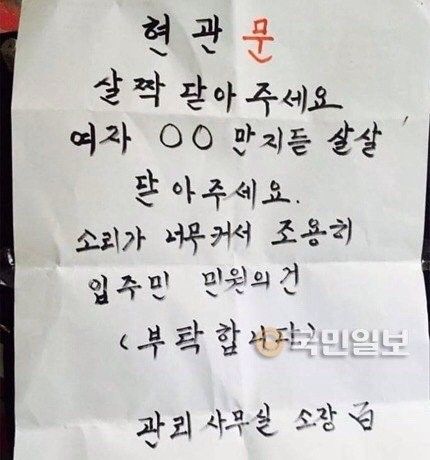 현관문
살짝 닫아 주세요
여자 ○○ 만지듯 살살
닫아주세요.
소리가 너무커서 조용히
입주민 민원의건
(부탁합니다)
국민일보
관리 사무실 소장 白